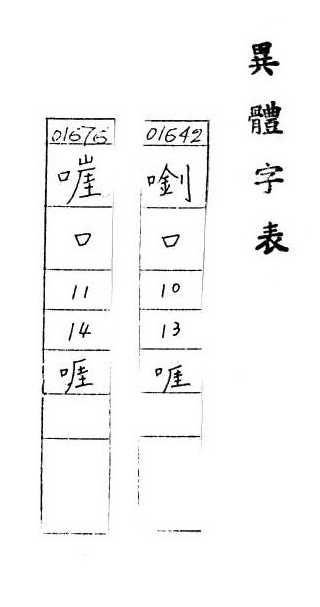 異體字表
01642
口
10
13
啀
01675
嘊
口
11
14
啀